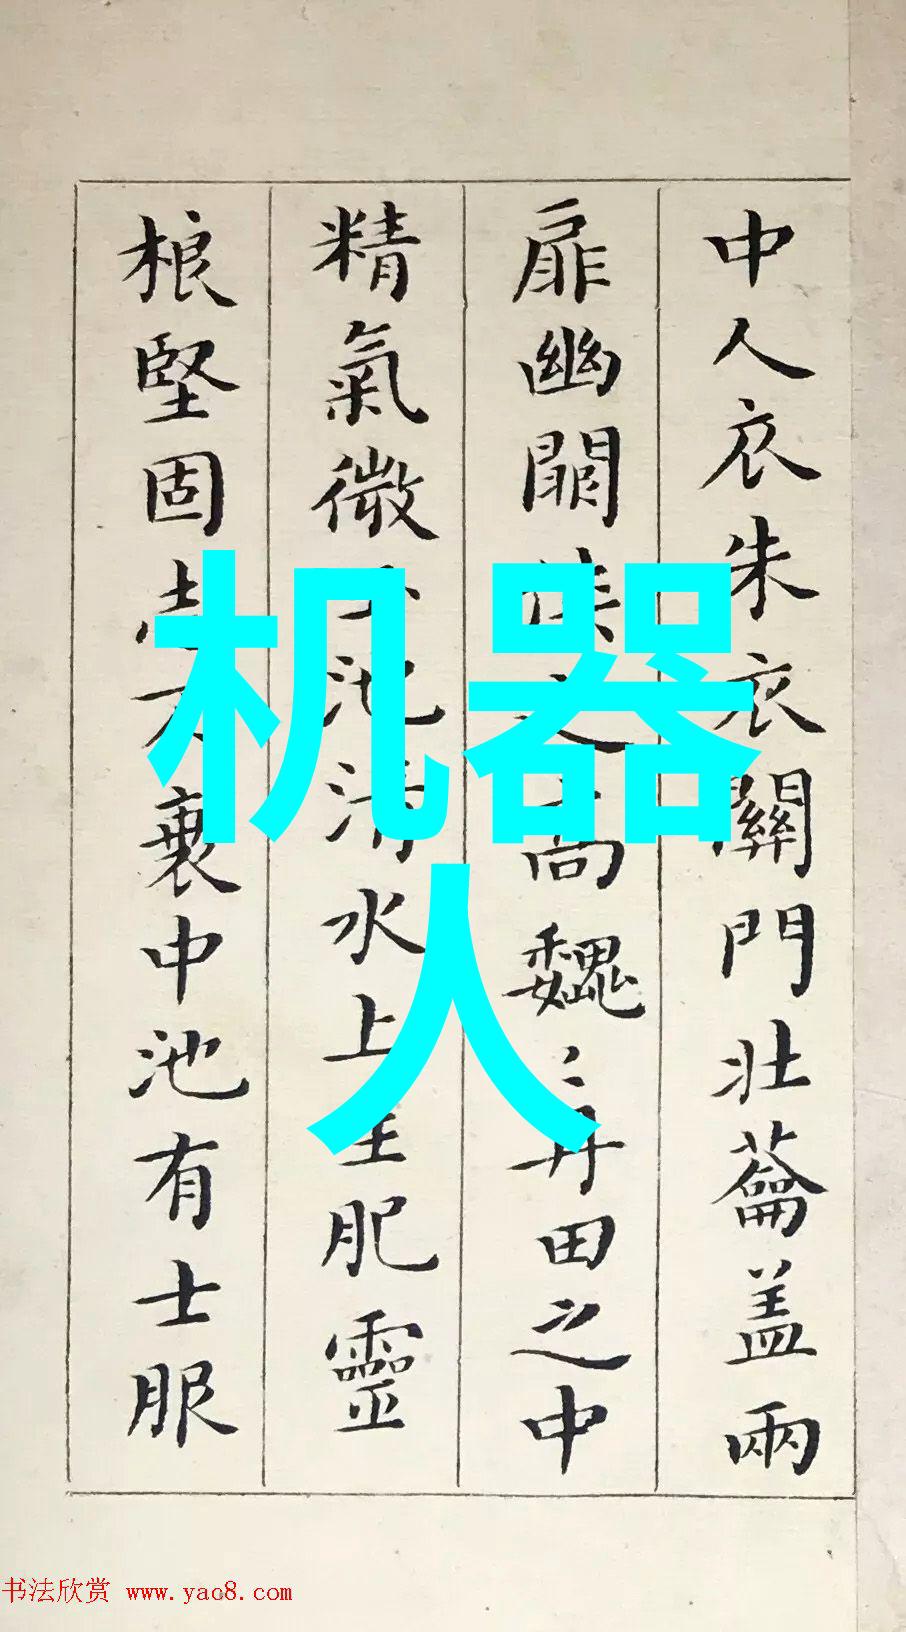 中人衣朱衣關門壯蘥盖兩
扉幽關俠之高魏〻丹田之中
精氣微玉池清水上生肥靈
根堅固志不衰中池有士服
机器
人
书法欣赏 www.yac8.com